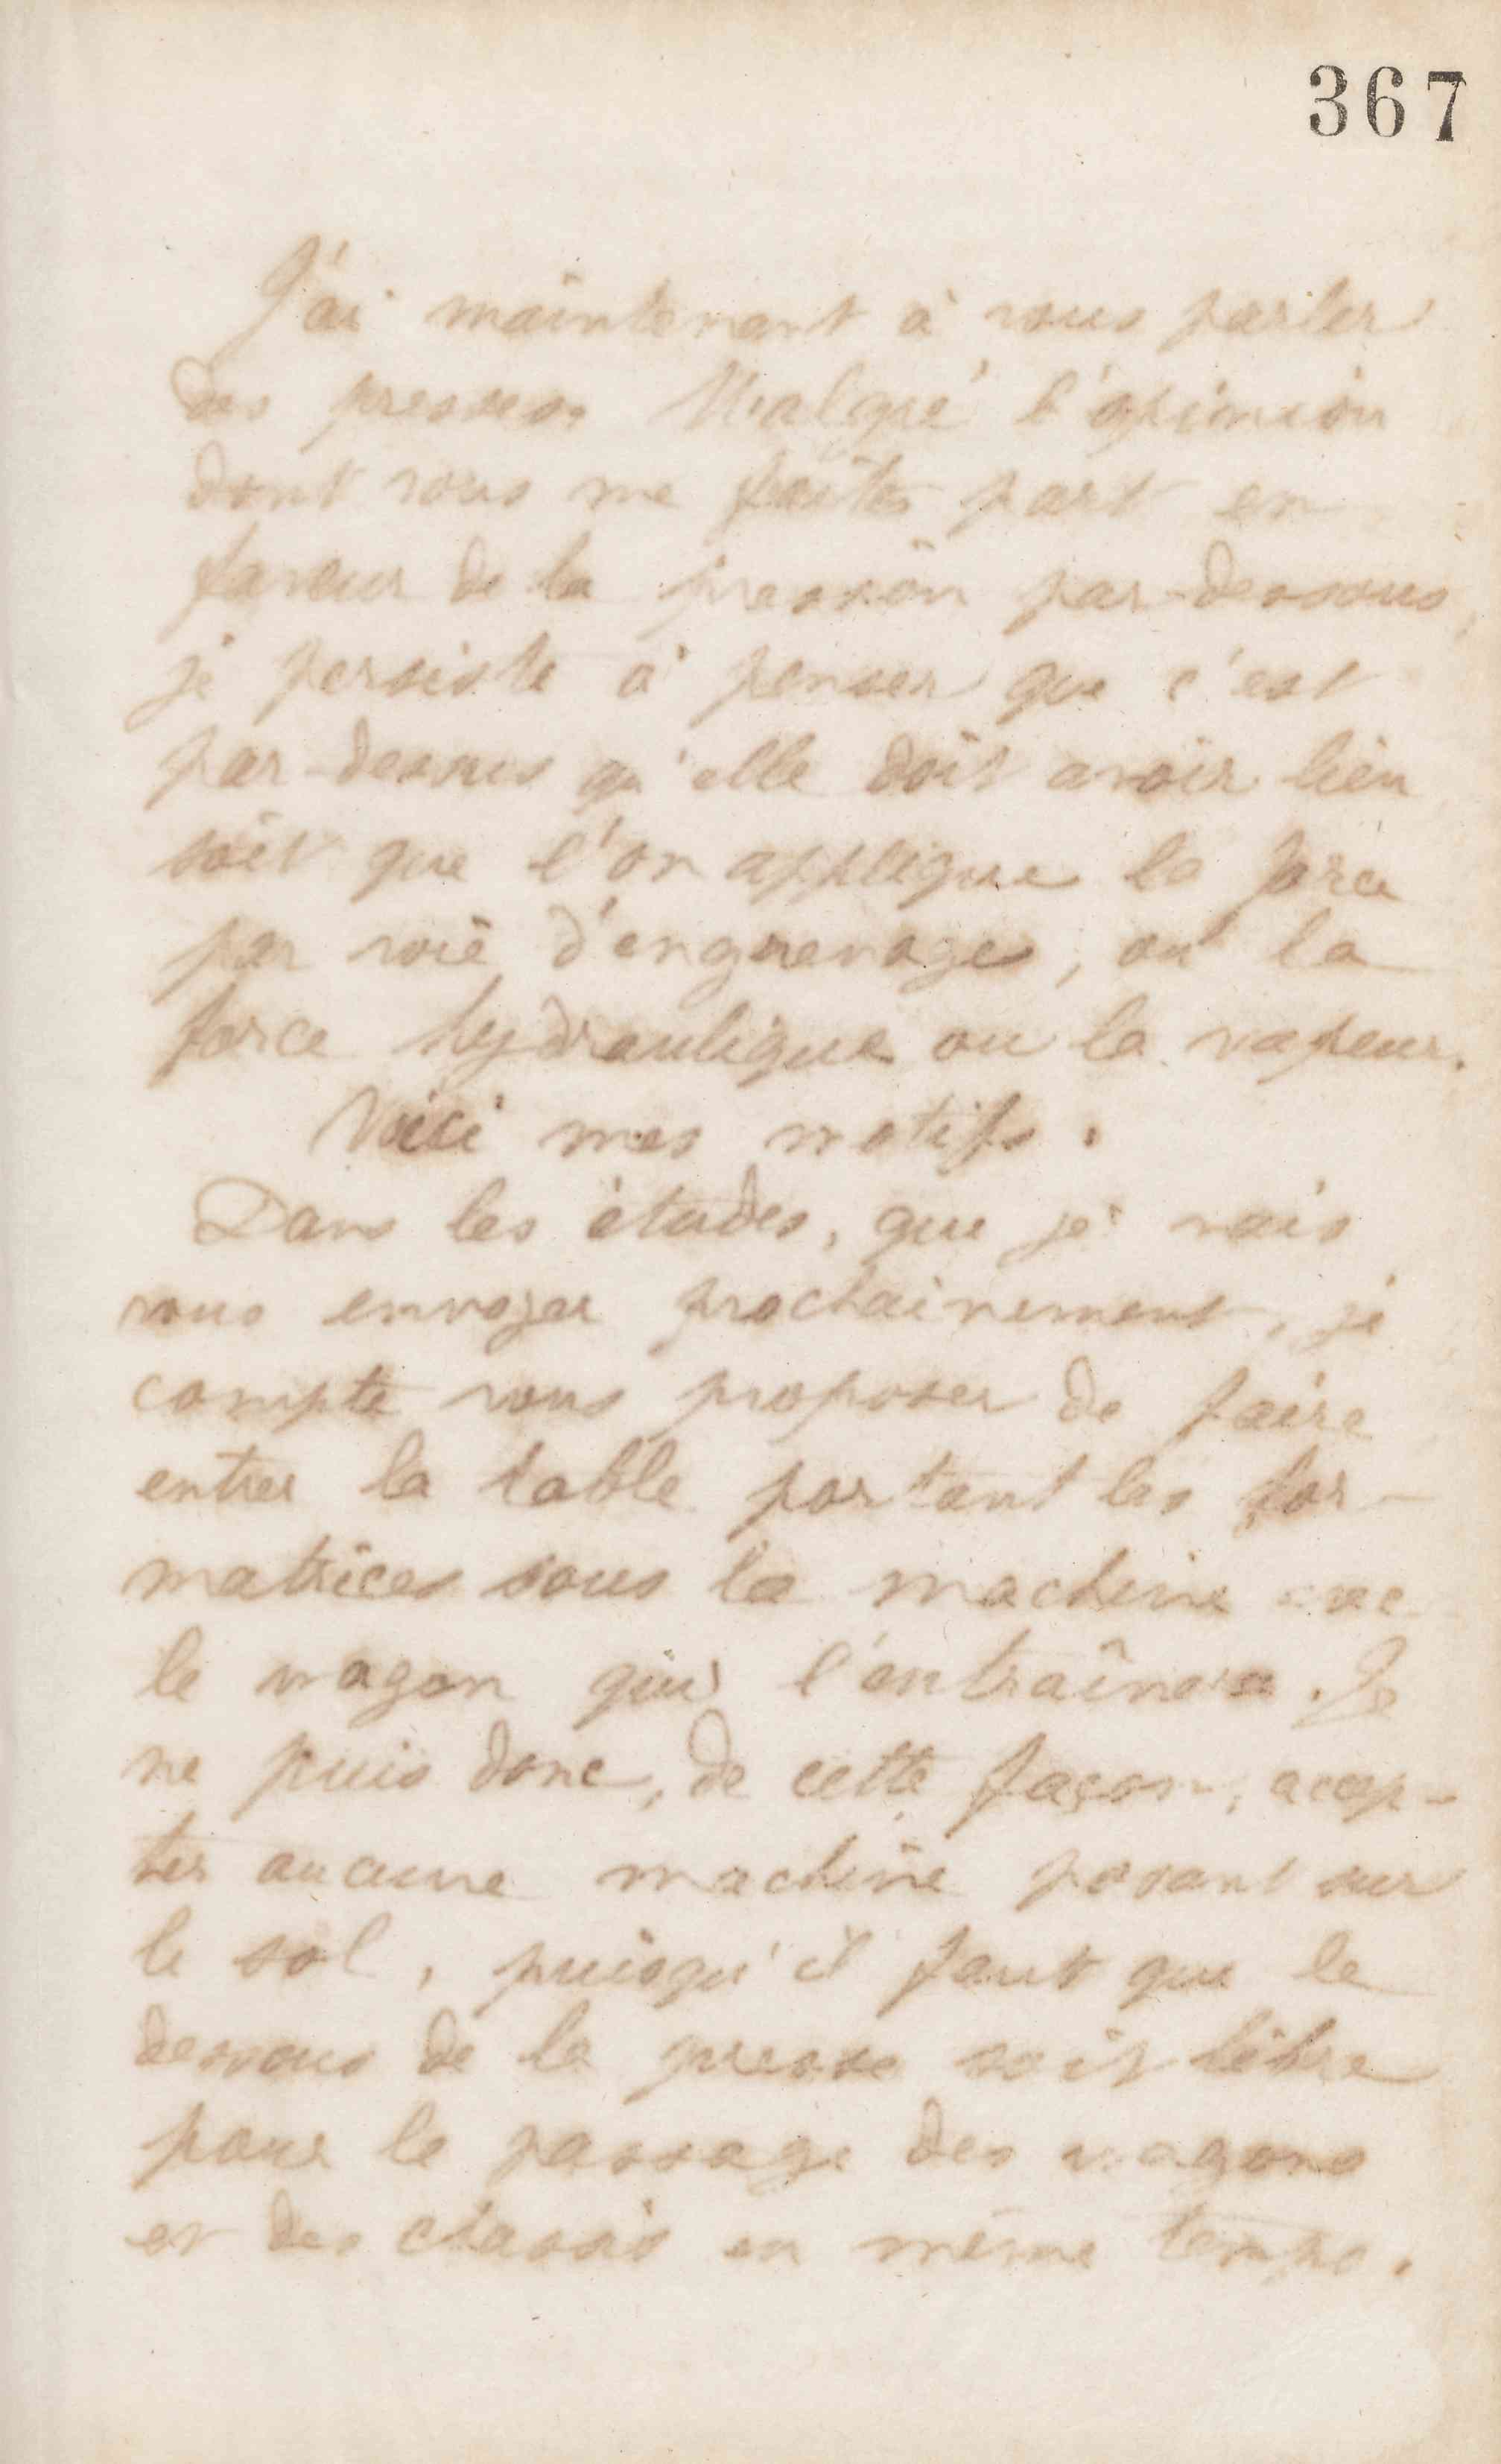 367
J'ai maintenant à vous parler
des presses. Malgré l'opinion
dont vous me faites part en
faveur de la pression par-dessous,
je persiste à penser que c'est
par-dessus qu'elle doit avoir lieu
soit que l'on applique la force
par voie d'engrenages, ou la
force hydraulique ou la vapeur.
Voici mes motifs.
Dans les études, que je vais
vous envoyer prochainement, je
compte vous proposer de faire
entrer la table portant les for-
matrices sous la machine avec
le wagon qui l'entraînera. Je
ne puis donc, de cette façon, accep-
ter aucune machine posant sur
le sol, puisqu'il faut que le
dessous de la presse soit libre
pour le passage des wagons
et des chassis en même temps.